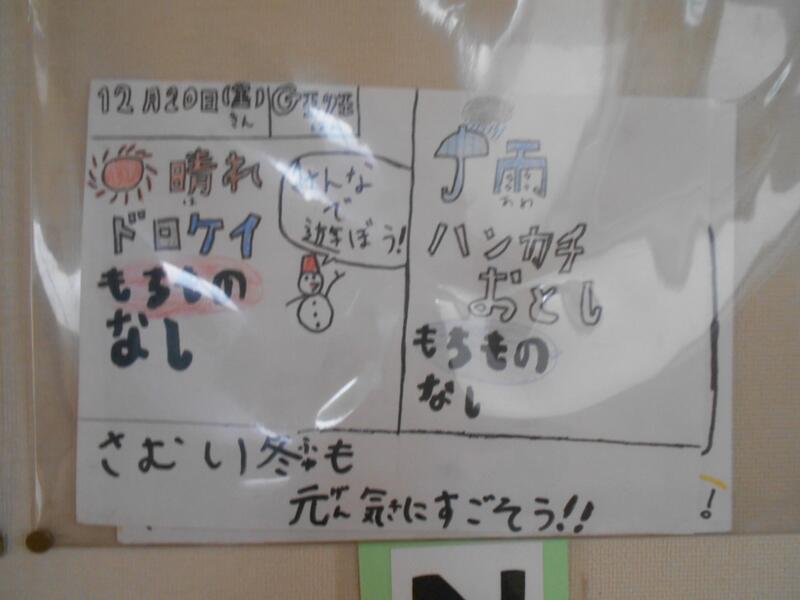 12月20日(金)
きん
晴れ
は
ドロケイ
もちもの
なし
みんな
で
遊ぼう!
雨
あめ
ハンカチ
おとし
もちもの
なし
さむい冬も
ふゆ
元気にすごそう!!
げん き
!
N